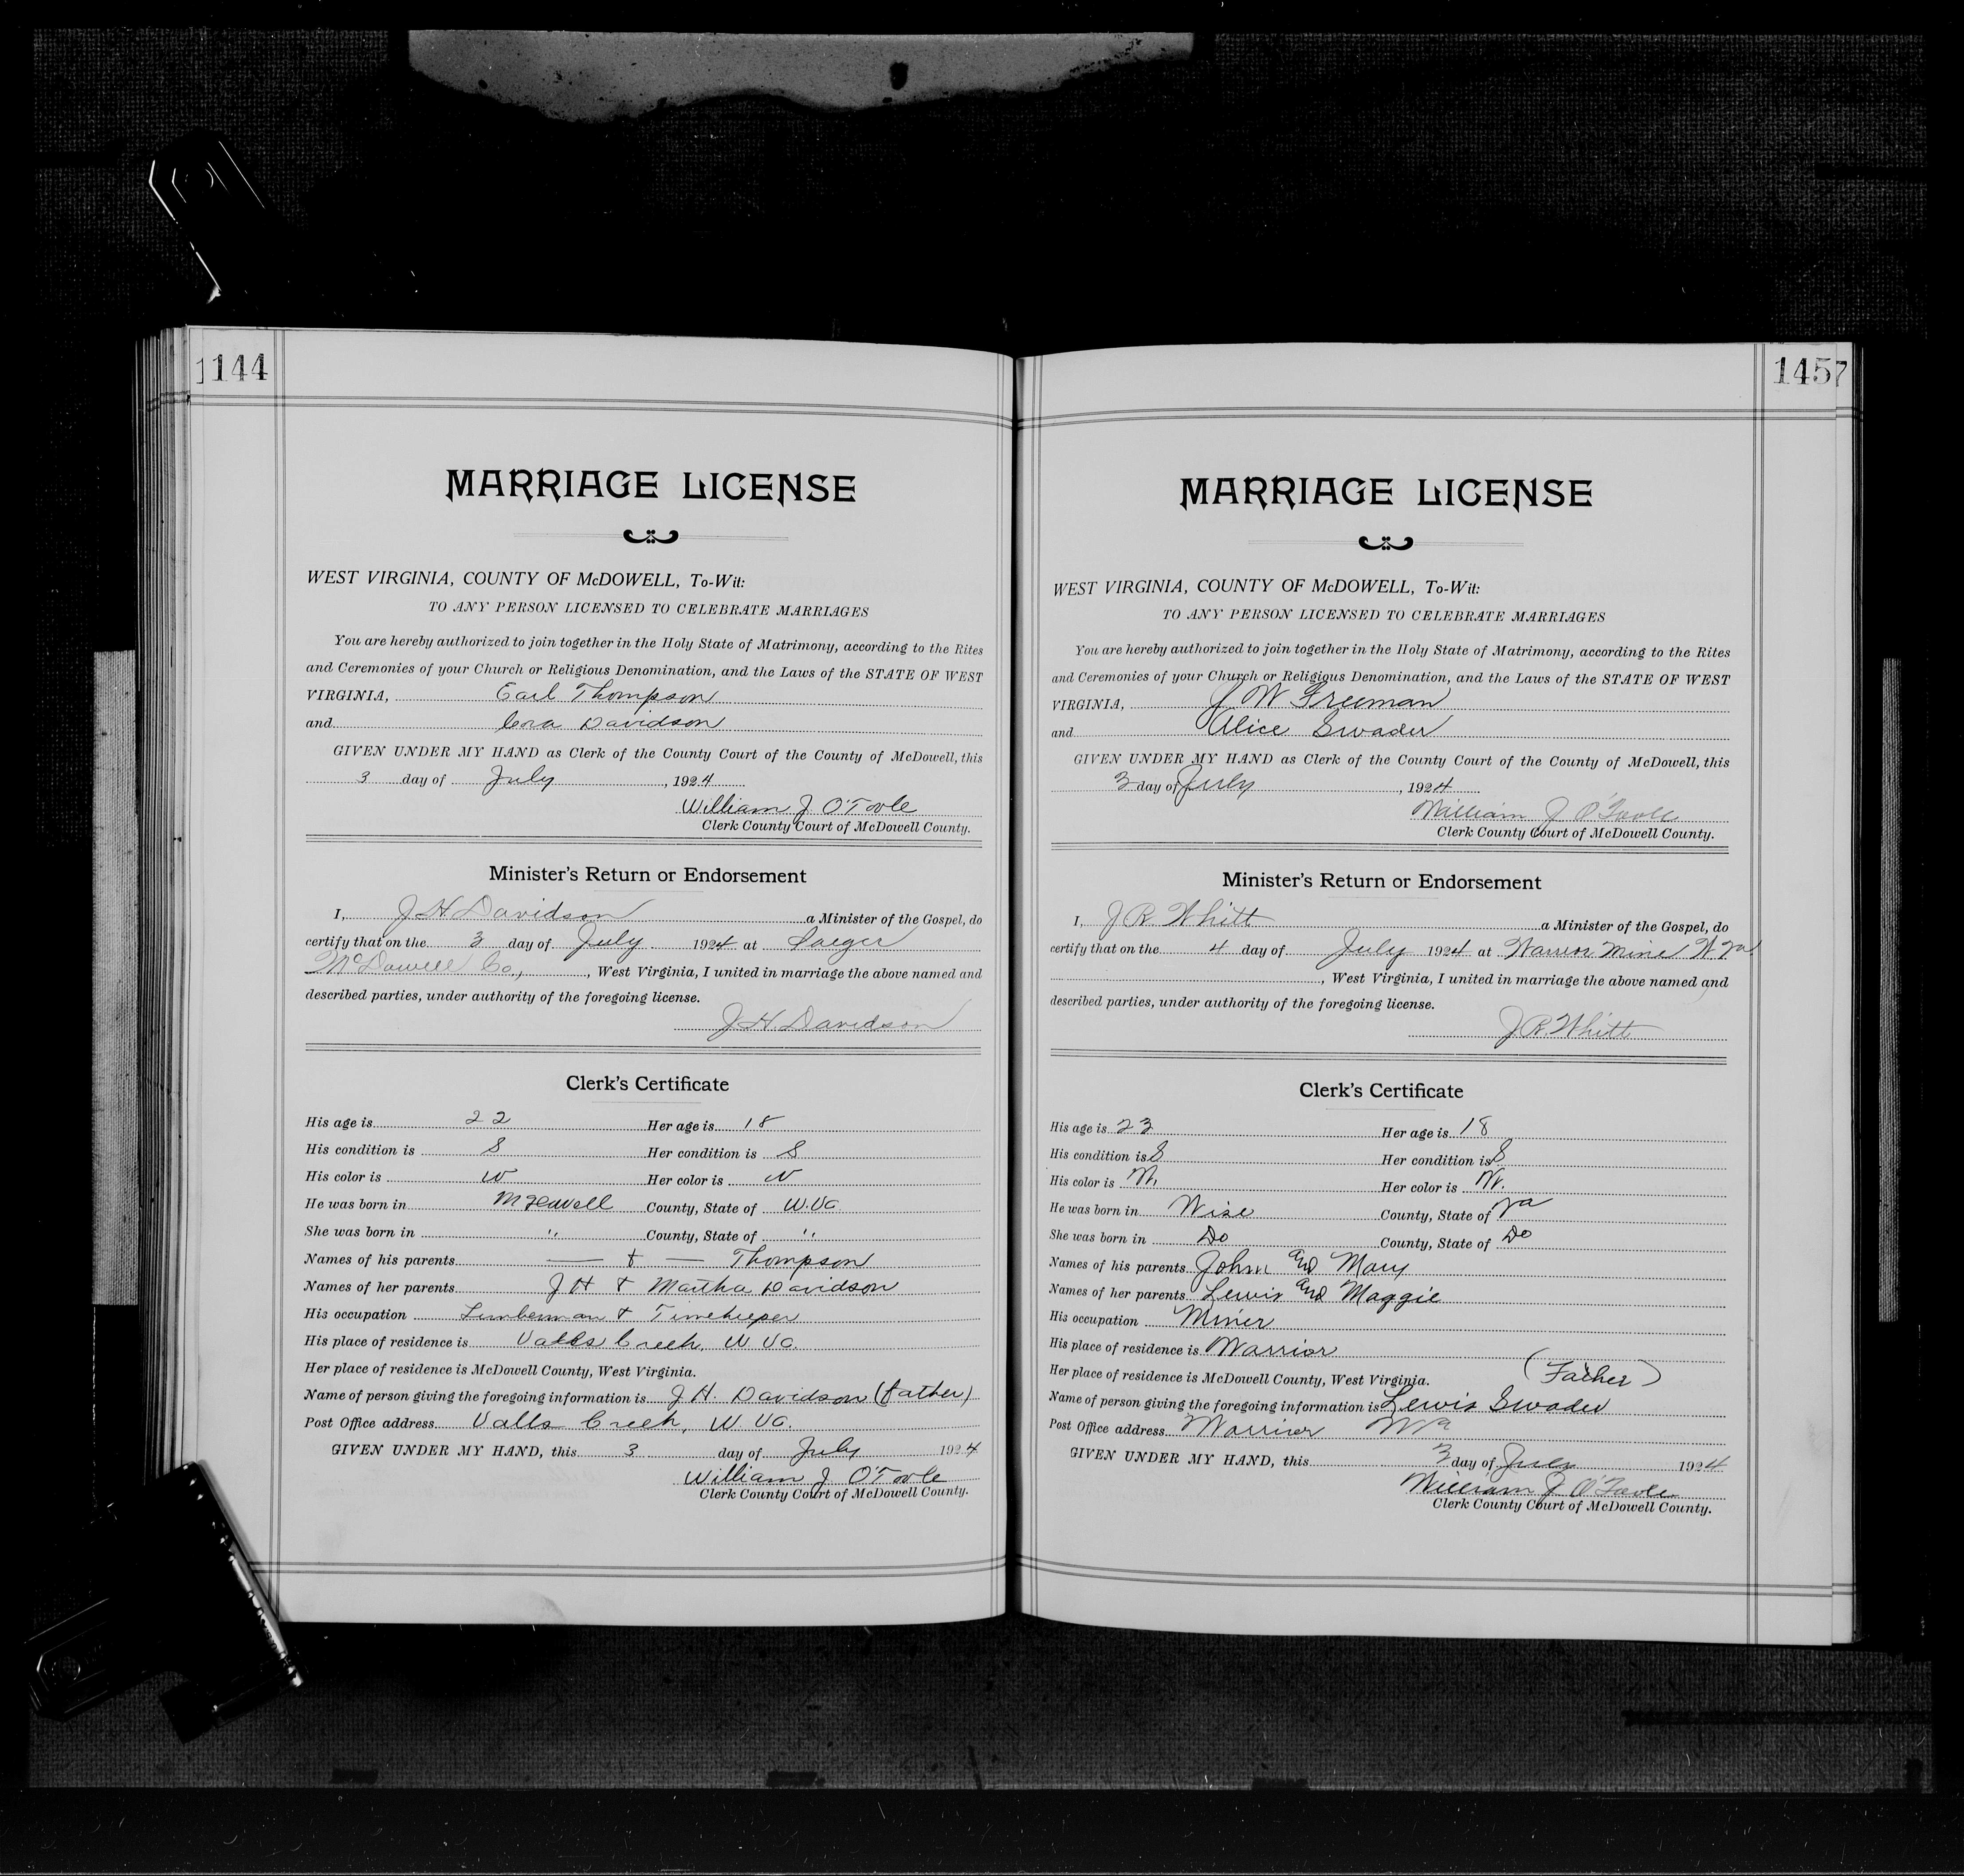 1144
MARRIAGE LICENSE
WEST VIRGINIA, COUNTY OF McDOWELL, To-Wit:
TO ANY PERSON LICENSED TO CELEBRATE MARRIAGES
You are hereby authorized to join together in the Holy State of Matrimony, according to the Rites
and Ceremonies of your Church or Religious Denomination, and the Laws of the STATE OF WEST
VIRGINIA, Earl Thompson
and Cora Davidson
GIVEN UNDER MY HAND as Clerk of the County Court of the County of McDowell, this
3 day of July, 1924
William J O'Toole
Clerk County Court of McDowell County.
Minister's Return or Endorsement
I, J H Davidson a Minister of the Gospel, do
certify that on the 3 day of July 1924 at Iaeger
McDowell Co., West Virginia, I united in marriage the above named and
described parties, under authority of the foregoing license.
J. H. Davidson
Clerk's Certificate
His age is 22 Her age is 18
His condition is S Her condition is S
His color is W Her color is W
He was born in McDowell County, State of W. Va.
She was born in " County, State of "
Names of his parents — & — Thompson
Names of her parents J H & Martha Davidson
His occupation Limberman & Timekeeper
His place of residence is Valls Creek, W. Va.
Her place of residence is McDowell County, West Virginia.
Name of person giving the foregoing information is J H. Davidson (father)
Post Office address Valls Creek, W. Va.
GIVEN UNDER MY HAND, this 3 day of July 1924
William J. O'Toole
Clerk County Court of McDowell County.
1457
MARRIAGE LICENSE
WEST VIRGINIA, COUNTY OF McDOWELL, To-Wit:
TO ANY PERSON LICENSED TO CELEBRATE MARRIAGES
You are hereby authorized to join together in the Holy State of Matrimony, according to the Rites
and Ceremonies of your Church or Religious Denomination, and the Laws of the STATE OF WEST
VIRGINIA, J W Freeman
and Alice Swader
GIVEN UNDER MY HAND as Clerk of the County Court of the County of McDowell, this
3 day of July, 1924
William J O'Toole
Clerk County Court of McDowell County.
Minister's Return or Endorsement
I, J R. Whitt a Minister of the Gospel, do
certify that on the 4 day of July 1924 at Warrior Mine W Va.
, West Virginia, I united in marriage the above named and
described parties, under authority of the foregoing license.
J. R. Whitt
Clerk's Certificate
His age is 23 Her age is 18
His condition is S Her condition is S
His color is W. Her color is W.
He was born in Wise County, State of Va
She was born in Do County, State of Do
Names of his parents John and Mary
Names of her parents Lewis and Maggie
His occupation Miner
His place of residence is Warrior
Her place of residence is McDowell County, West Virginia. (Father)
Name of person giving the foregoing information is Lewis Swader
Post Office address Warrior W Va
GIVEN UNDER MY HAND, this 3 day of July 1924
William J O'Toole
Clerk County Court of McDowell County.